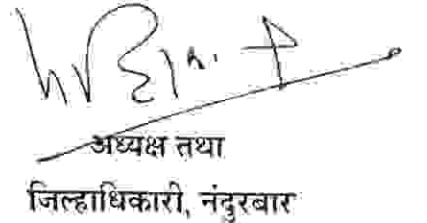 अध्यक्ष तथा
जिल्हाधिकारी, नंदुरबार